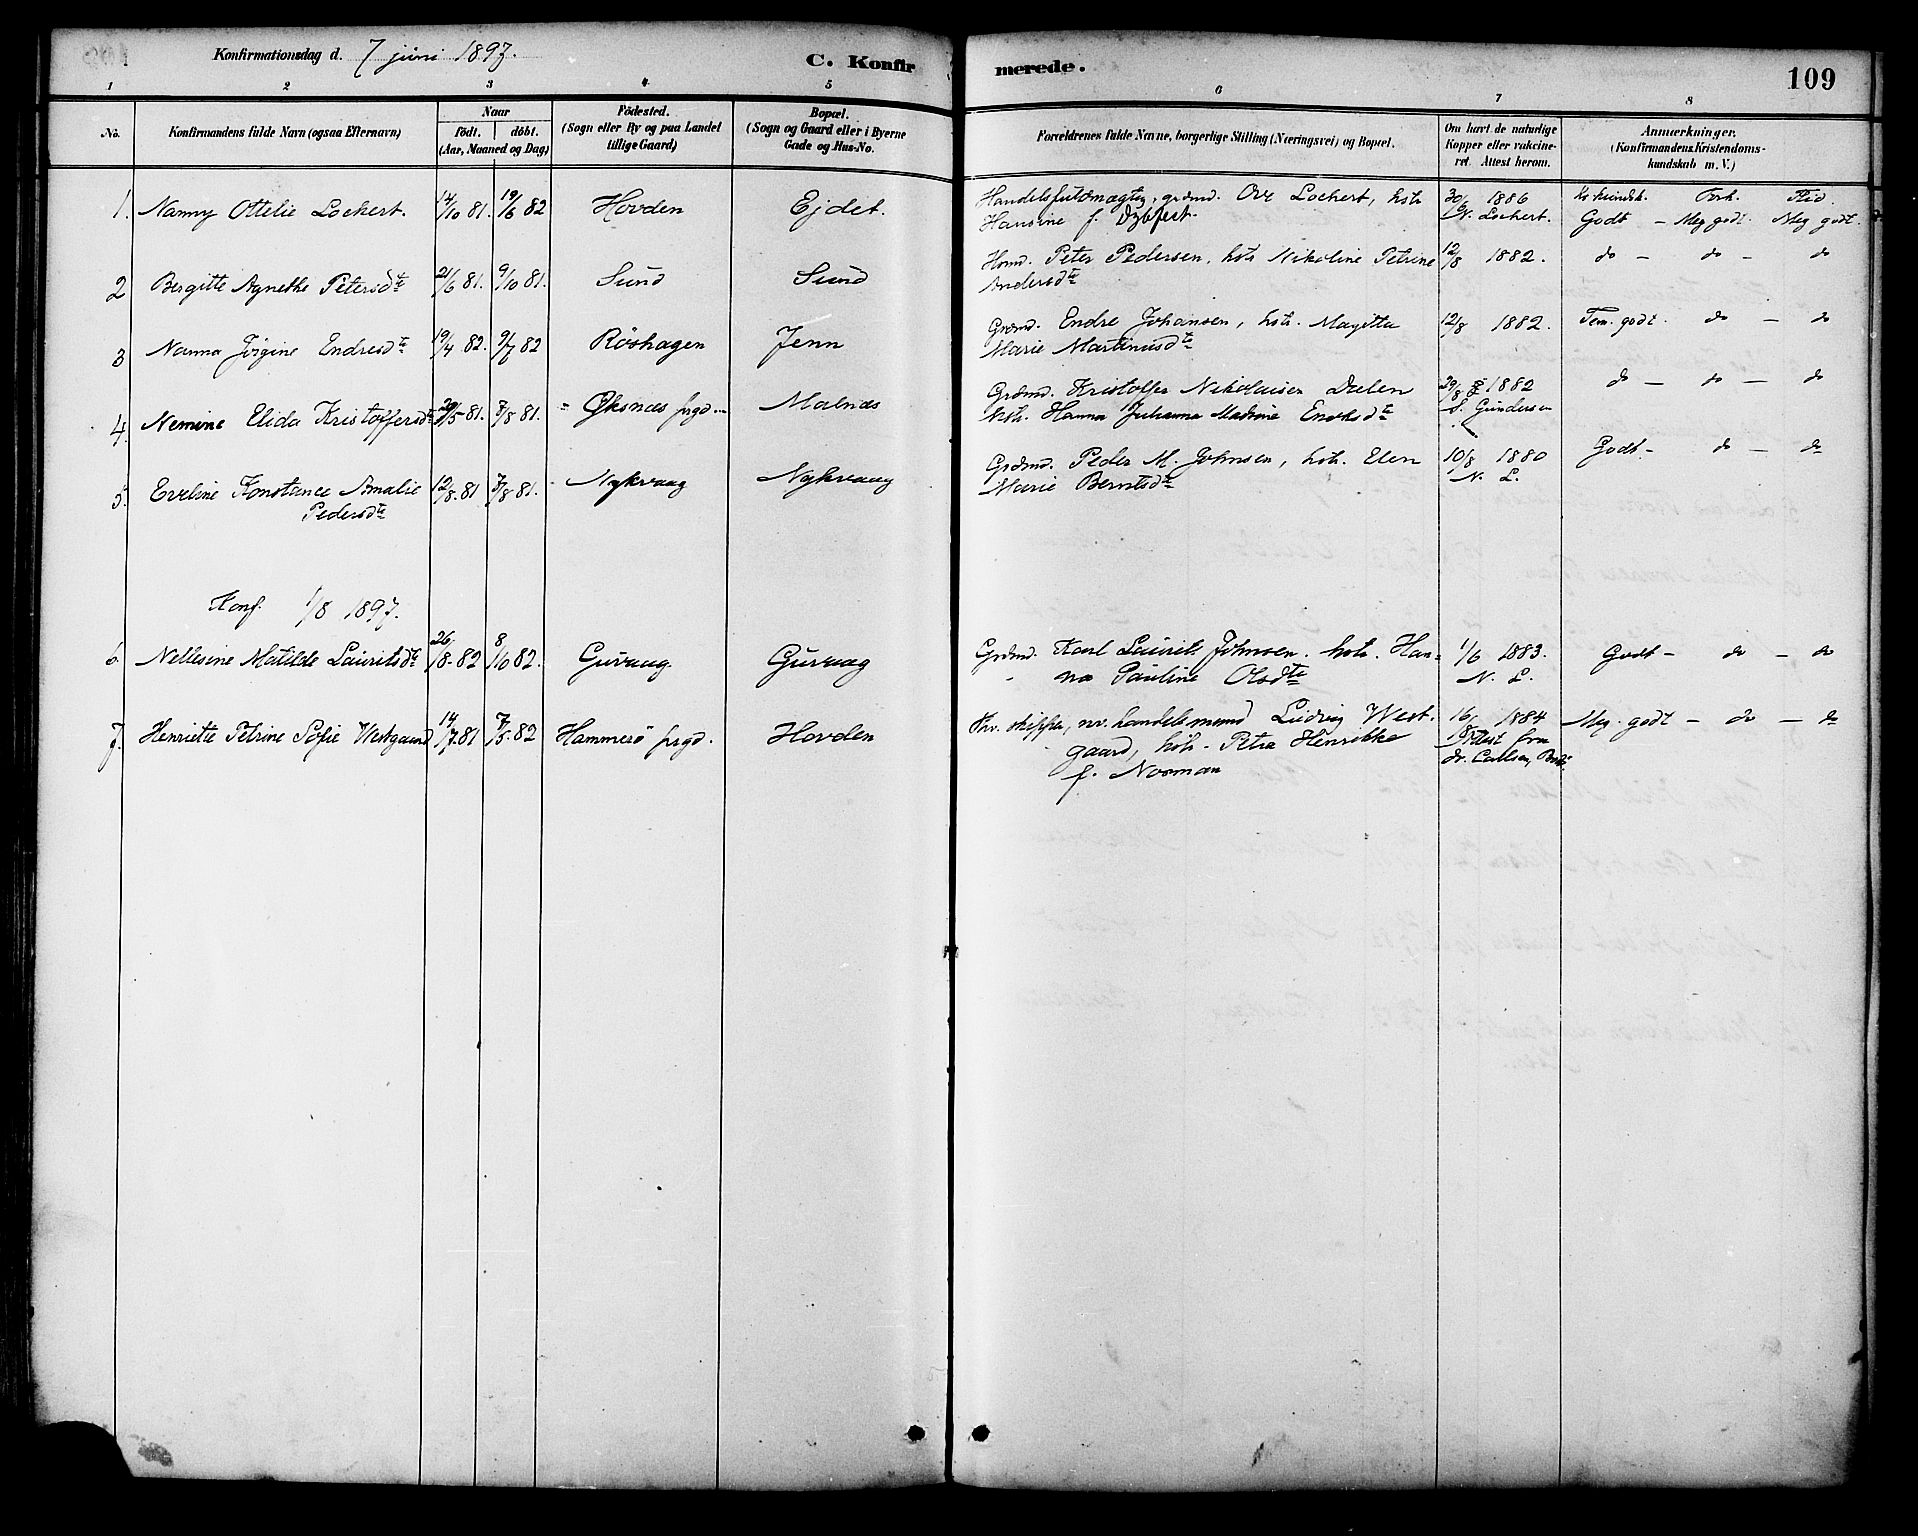 Konfirmationsdag d. 7 juni 1897.
C. Konfirmerede.
109
1 2 3 4 5 6 7 8
No.
Konfirmandens fulde Navn (ogsaa Efternavn)
Naar
födt. döbt.
(Aar, Maaned og Dag)
Födested.
(Sogn eller By og paa Landet
tillige Gaard)
Bopæl.
(Sogn og Gaard eller i Byerne
Gade og Hus-No.
Forældrenes fulde Navne, borgerlige Stilling (Næringsvei) og Bopæl.
Om havt de naturlige
Kopper eller vakcine-
ret. Attest herom.
Anmærkninger.
(Konfirmandens Kristendoms-
kundskab m. V.)
1. Nanny Ottelie Lockert. 14/10 81. 19/6 82 Hovden Ejdet. Handelsfuldmægtig, grdmd. Ove Lockert, hstr. 30/6 1886 Kr. kundsk. Forh. Flid.
Hansine f. Dybfest. N. Lockert. Godt - Meg godt. Meg godt.
2 Bergitte Agnethe Petersdtr 21/6 81. 9/10 81. Sund Sund Hmd. Peter Pedersen, hstr Nikoline Petrine 12/8 1882. do - do - do
Andersdtr
3 Nanna Jörgine Endresdtr 19/4 82. 9/7 82 Röshagen Jenn Grdmd. Endre Johansen, hstr. Magitta 12/8 1882. Tem. godt. do - do
Marie Martinusdtr
4. Nemine Elida Kristoffersdtr 29/5 81. 7/8 81. Øksnæs prgd. Malnæs Grdmd. Kristoffer Nikolaisen Dalen 29/8 1882 do - do - do
hstr. Hanna Julianna Madsine Enoksdtr S. Gundersen
5. Eveline Konstance Amalie 12/8. 81 7/8 81. Nykvaag Nykvaag Grdmd. Peder M. Johnsen, hstr. Elen 10/8 1880 Godt - do - do
Pedersdtr Marie Berntsdtr N. L.
Konf. 1/8 1897.
6 Nellesine Matilde Lauritsdtr 26/8. 82 8/10 82. Guvaag Guvaag Grdmd. Karl Laurits Johnsen. hstr. Han- 1/6 1883. Godt - do - do
na Pauline Olsdtr N. L.
7. Henriette Petrine Sofie Westgaard 14/7. 81 7/5. 82 Hammerö prgd. Hovden Fhv. skipper, nv. handelsmand Ludvig West- 16/8 1884 Meg. godt - do - do
gaard, hstr. Petra Henrikke Attest fra
f. Norman dr. Carlsen, Bodö.